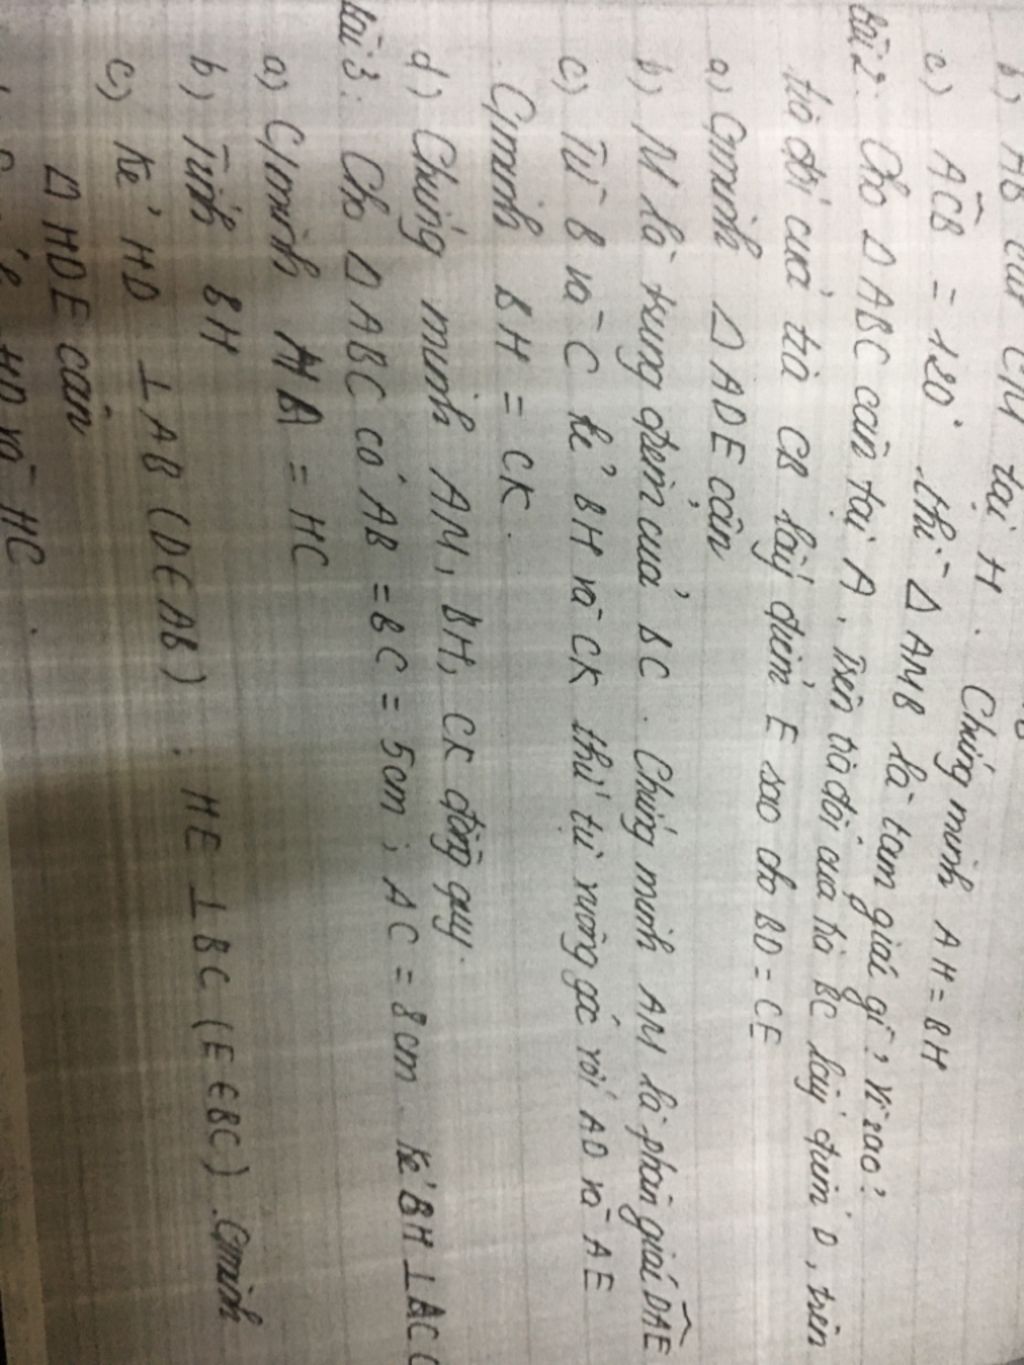 b) AB cắt CM tại H. Chứng minh AH = BH
c) ACB = 120° thì Δ AMB là tam giác gì? Vì sao?
Bài 2: Cho Δ ABC cân tại A. Trên tia đối của tia BC lấy điểm D, trên
tia đối của tia CB lấy điểm E sao cho BD = CE
a) C/minh Δ ADE cân
b) M là trung điểm của BC. Chứng minh AM là phân giác DAE
c) Từ B và C kẻ BH và CK thứ tự vuông góc với AD và AE
C/minh BH = CK.
d) Chứng minh AM, BH, CK đồng quy.
Bài 3: Cho Δ ABC có AB = BC = 5cm; AC = 8cm. Kẻ BH ⊥ AC (
a) C/minh HA = HC
b) Tính BH
c) Kẻ HD ⊥ AB (D∈AB); HE ⊥ BC (E∈BC). C/minh
Δ HDE cân
HD và HC.